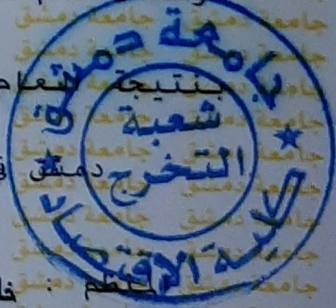 جامعة دمشق
شعبة
التخرج
كلية الاقتصاد
بنتيجة
دمشق